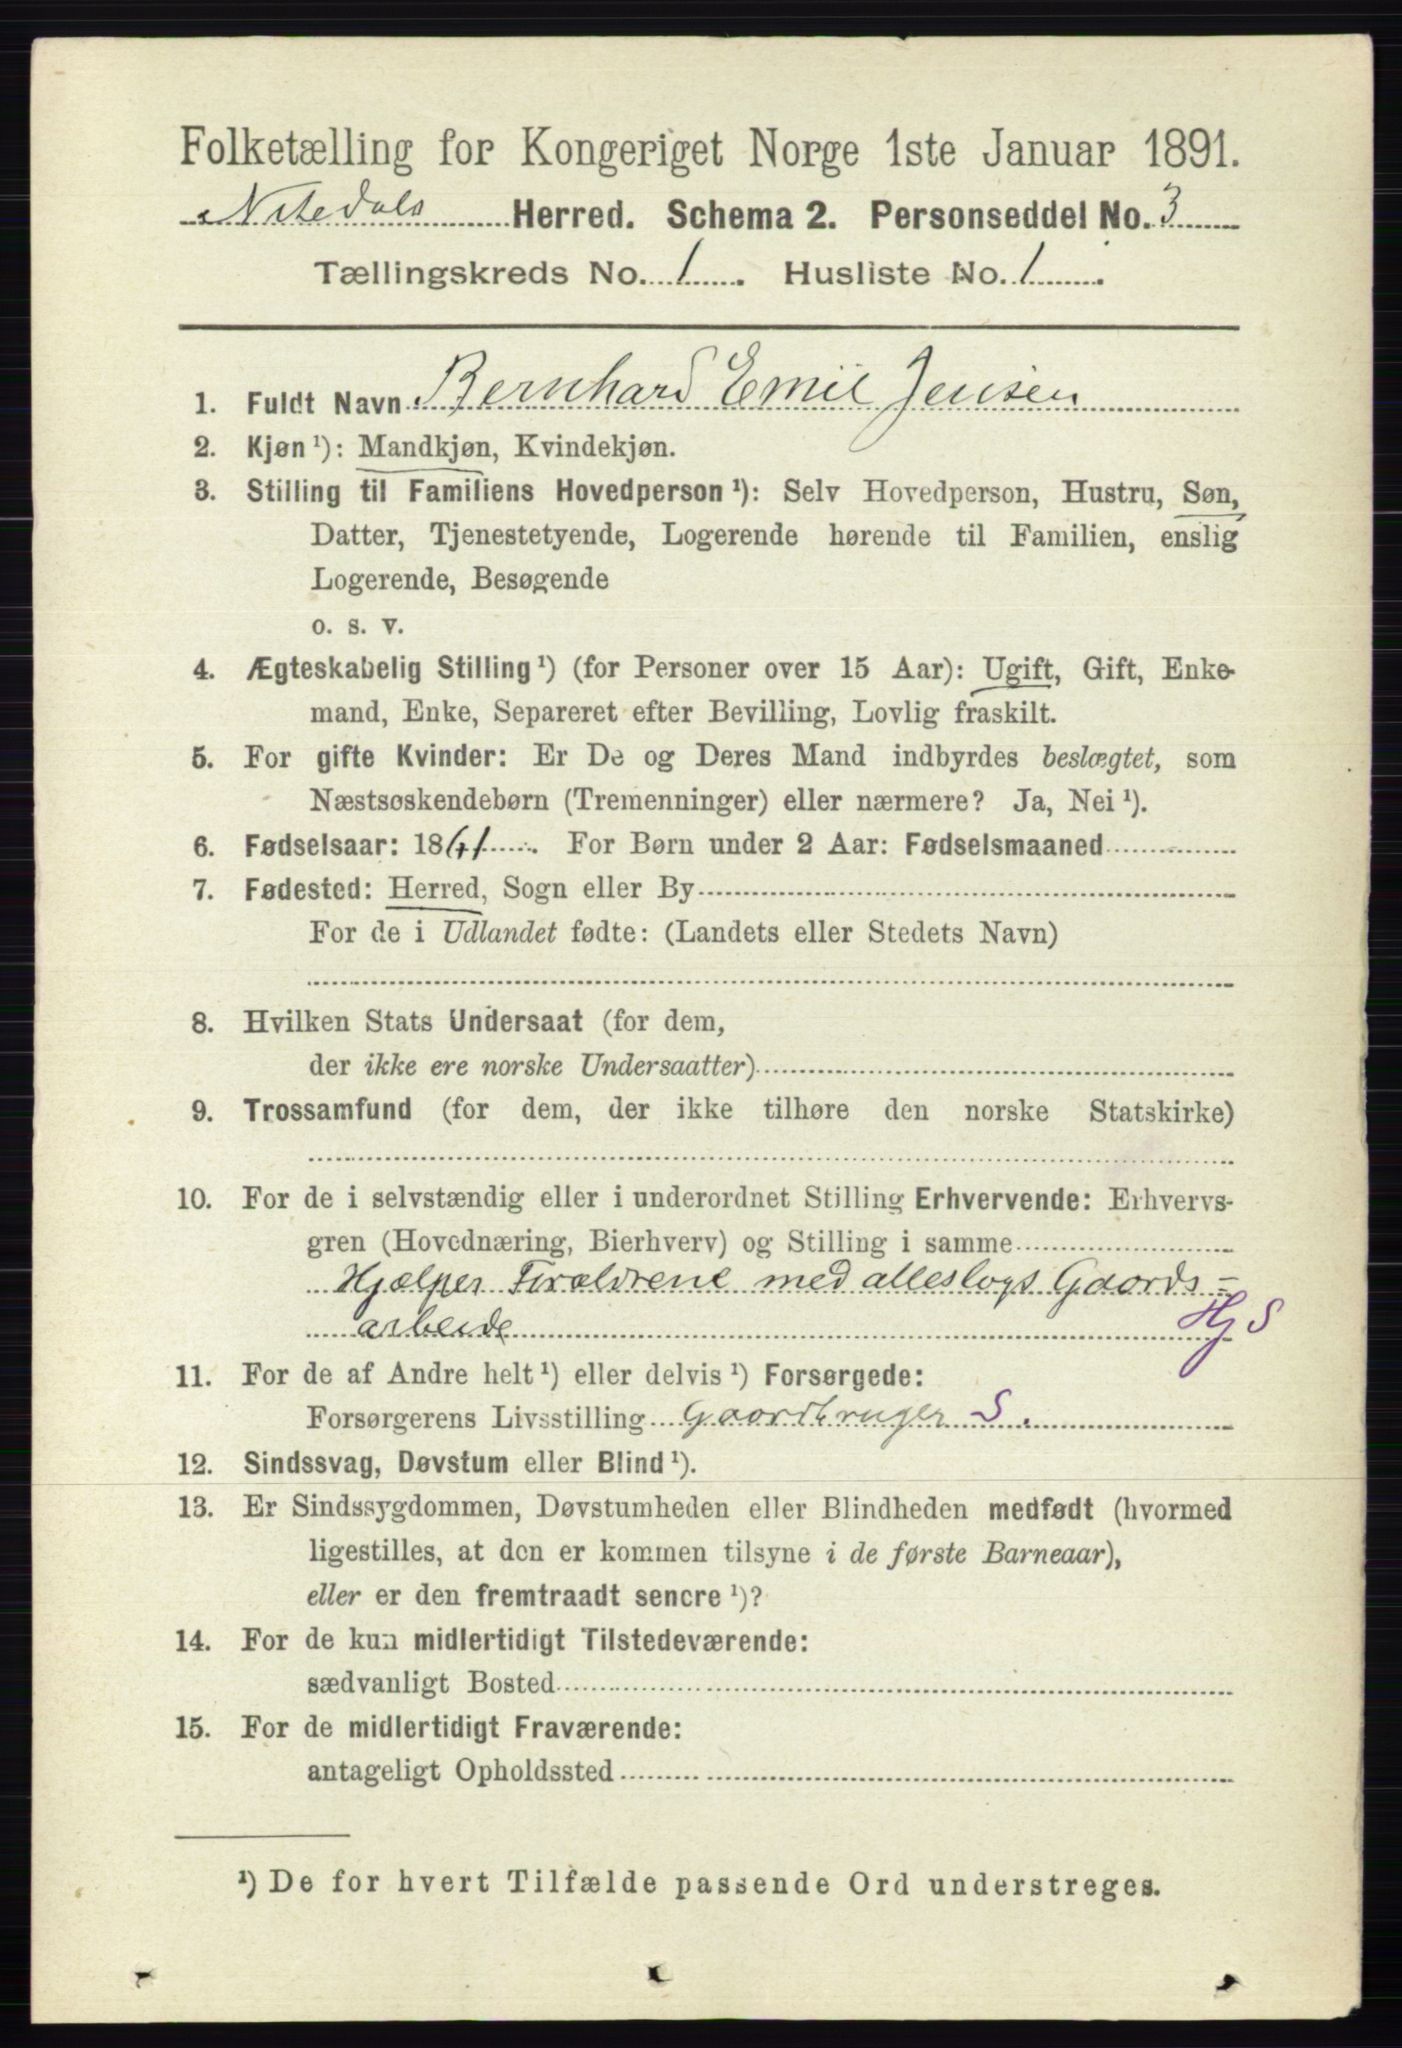 Folketælling for Kongeriget Norge 1ste Januar 1891.
Nitedals Herred. Schema 2. Personseddel No. 3
Tællingskreds No. 1. Husliste No. 1.
1. Fuldt Navn Bernhard Emil Jensen
2. Kjøn¹): Mandkjøn, Kvindekjøn.
3. Stilling til Familiens Hovedperson¹): Selv Hovedperson, Hustru, Søn,
Datter, Tjenestetyende, Logerende hørende til Familien, enslig
Logerende, Besøgende
o. s. v.
4. Ægteskabelig Stilling¹) (for Personer over 15 Aar): Ugift, Gift, Enke-
mand, Enke, Separeret efter Bevilling, Lovlig fraskilt.
5. For gifte Kvinder: Er De og Deres Mand indbyrdes beslægtet, som
Næstsøskendebørn (Tremenninger) eller nærmere? Ja, Nei¹).
6. Fødselsaar: 18 . For Børn under 2 Aar: Fødselsmaaned
7. Fødested: Herred, Sogn eller By
For de i Udlandet fødte: (Landets eller Stedets Navn)
8. Hvilken Stats Undersaat (for dem,
der ikke ere norske Undersaatter)
9. Trossamfund (for dem, der ikke tilhøre den norske Statskirke)
10. For de i selvstændig eller i underordnet Stilling Erhvervende: Erhvervs-
gren (Hovednæring, Bierhverv) og Stilling i samme
Hjælper Forældrene med alleslags Gaards=
arbeide HjS
11. For de af Andre helt¹) eller delvis¹) Forsørgede:
Forsørgerens Livsstilling Gaardbruger S.
12. Sindssvag, Døvstum eller Blind¹).
13. Er Sindssygdommen, Døvstumheden eller Blindheden medfødt (hvormed
ligestilles, at den er kommen tilsyne i de første Barneaar),
eller er den fremtraadt senere¹)?
14. For de kun midlertidigt Tilstedeværende:
sædvanligt Bosted
15. For de midlertidigt Fraværende:
antageligt Opholdssted
¹) De for hvert Tilfælde passende Ord understreges.